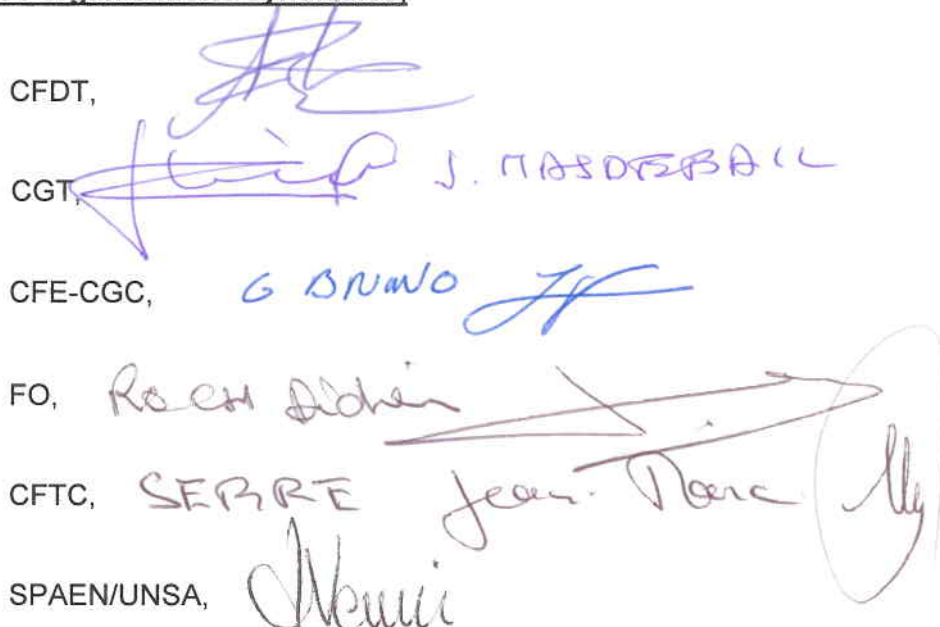 CFDT,
CGT, J. MASDEBAIL
CFE-CGC, G BRUNO
FO, ROCH Didier
CFTC, SERRE Jean-Marc
SPAEN/UNSA,